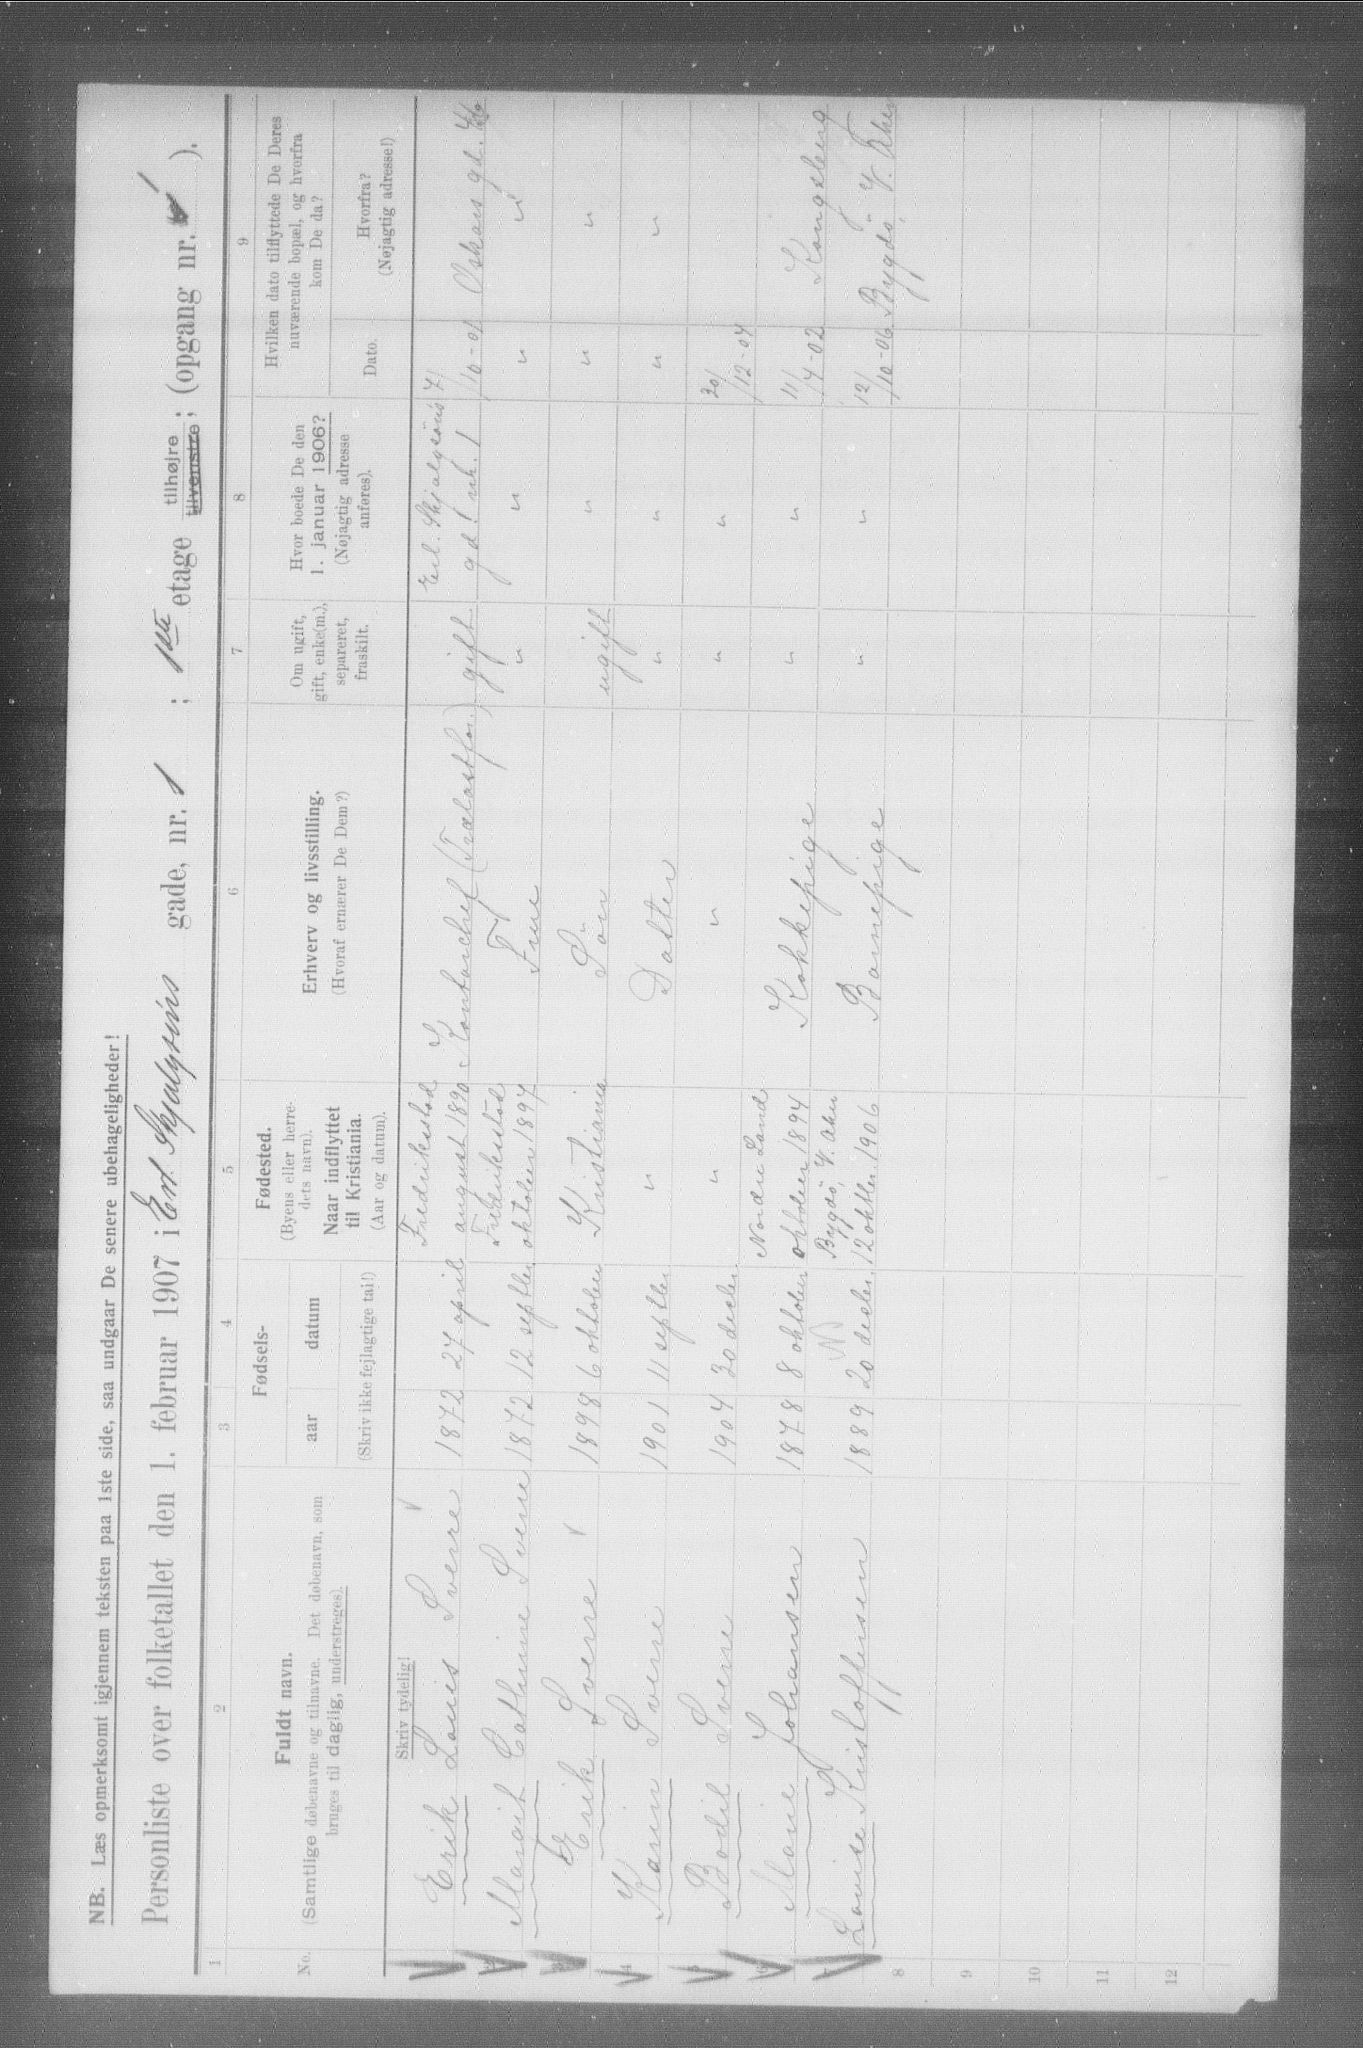 NB. Læs opmerksomt igjennem teksten paa 1ste side, saa undgaar De senere ubehageligheder!
Personliste over folketallet den 1. februar 1907 i Erl. Skjalgsøns gade, nr. 1 ; 1ste etage tilhøjre tilvenstre; (opgang nr. 1 ).
1 2 3 4 5 6 7 8 9
No.
Fuldt navn.
(Samtlige døbenavne og tilnavne. Det døbenavn, som
bruges til daglig, understreges).
Fødsels-
aar datum
(Skriv ikke fejlagtige tal!)
Fødested.
(Byens eller herre-
dets navn).
Naar indflyttet
til Kristiania.
(Aar og datum).
Erhverv og livsstilling.
(Hvoraf ernærer De Dem?)
Om ugift,
gift, enke(m.),
separeret,
fraskilt.
Hvor boede De den
1. januar 1906?
(Nøjagtig adresse
anføres).
Hvilken dato tilflyttede De Deres
nuværende bopæl, og hvorfra
kom De da?
Dato.
Hvorfra?
(Nøjagtig adresse!)
Skriv tydelig!
Fredrikstad Erl. Skjalgsøns 7/
Erik Louis Sverre 1872 27 april august 1890 Kontorchef (Trælastfor.) gift gd. nr. 1 10-01 Oskars gd.
Fredrikstad
2 Margit Cathrine Sverre 1872 12 septbr. oktober 1897 Frue " " " "
3 Erik Sverre 1898 6 oktober Kristiania Søn ugift " " "
4 Karin Sverre 1901 11 septbr. " Datter " " " "
5 Bodil Sverre 1904 30 decbr. " " " " 30/12-04
Nordre Land
6 Marie Johansen 1878 8 oktober oktober 1894 Kokkepige " " 11/4-02 Kongsberg
Bygdö, V. Aker
7 Louise Kristoffersen 1889 20 decbr. 12 oktbr. 1906 Barnepige " " 12/10-06 Bygdö, V. Aker
8
9
10
11
12